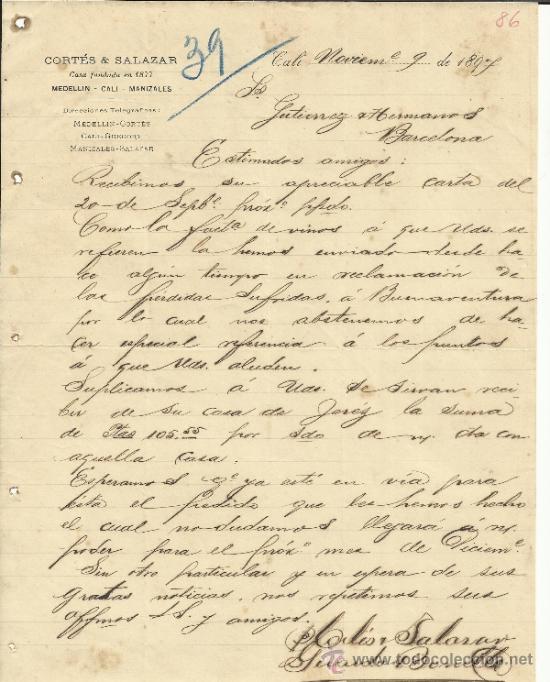 86
39
CORTÉS & SALAZAR
Casa fundada en 1877
MEDELLIN - CALI - MANIZALES
Direcciones Telegráficas:
MEDELLIN-CORTÉS
MANIZALES-SALAZAR
Cali Noviemᵉ 9 de 1897
Sˢ.
Gutierrez Hermanos
Barcelona
Estimados amigos:
Recibimos su apreciable carta del
20 de Sepbᵉ. próxº. ppdo.
Como la factª de vinos á que Uds. se
refieren la hemos enviado desde ha-
ce algun tiempo en reclamación de
las pérdidas sufridas á Buenaventura
por lo cual nos abstenemos de ha-
cer especial referencia á los puntos
á que Uds. aluden.
Suplicamos á Uds. se sirvan reci
bir de su casa de Jerez la suma
de Ptas 105.55 por sdo de n/ cta con
aquella casa.
Esperamos qᵉ ya esté en via para
esta el pedido que les hemos hecho
el cual no dudamos llegará á n/.
poder para el próxº mes de Diciemᵉ.
Sin otro particular y en espera de sus
gratas noticias, nos repetimos sus
affmos s.S. y amigos.
Salazar
todocoleccion.net